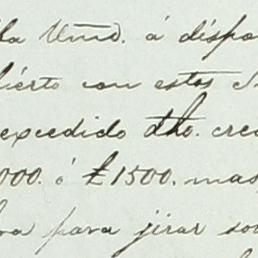 la Umd. á dispo
bierto con estos S
excedido dho. cre
000. ó £1500. mas
va para jirar so